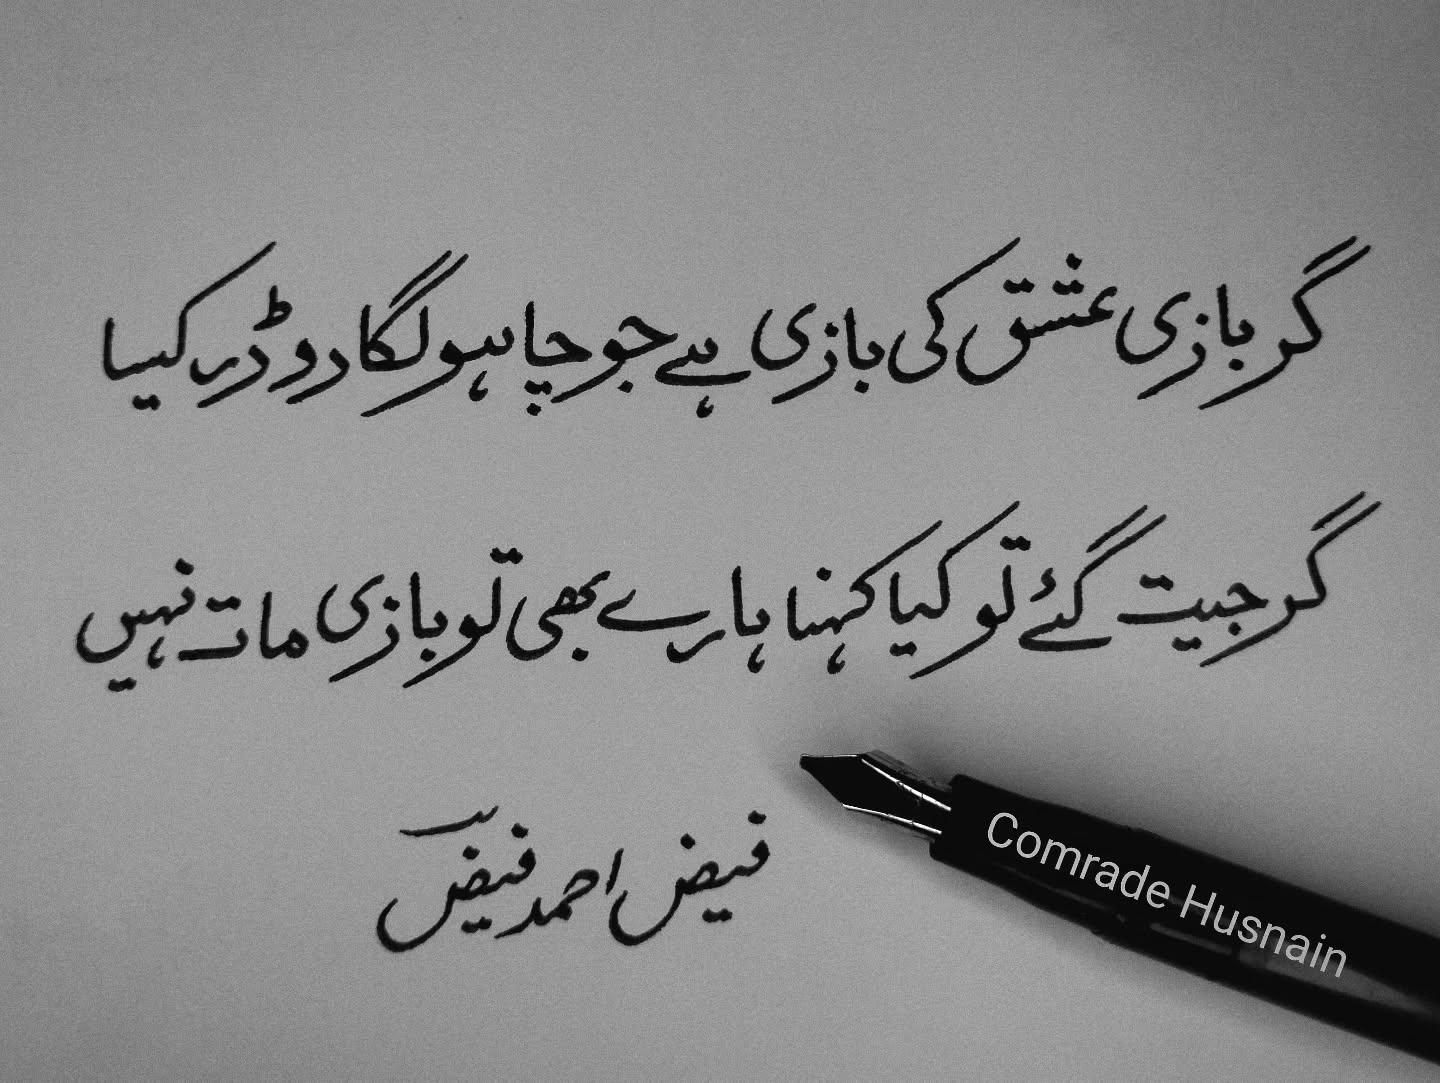 گر بازی عشق کی بازی ہے جو چاہو لگا دو ڈر کیسا
گر جیت گئے تو کیا کہنا ہارے بھی تو بازی مات نہیں
فیض احمد فیضؔ
Comrade Husnain